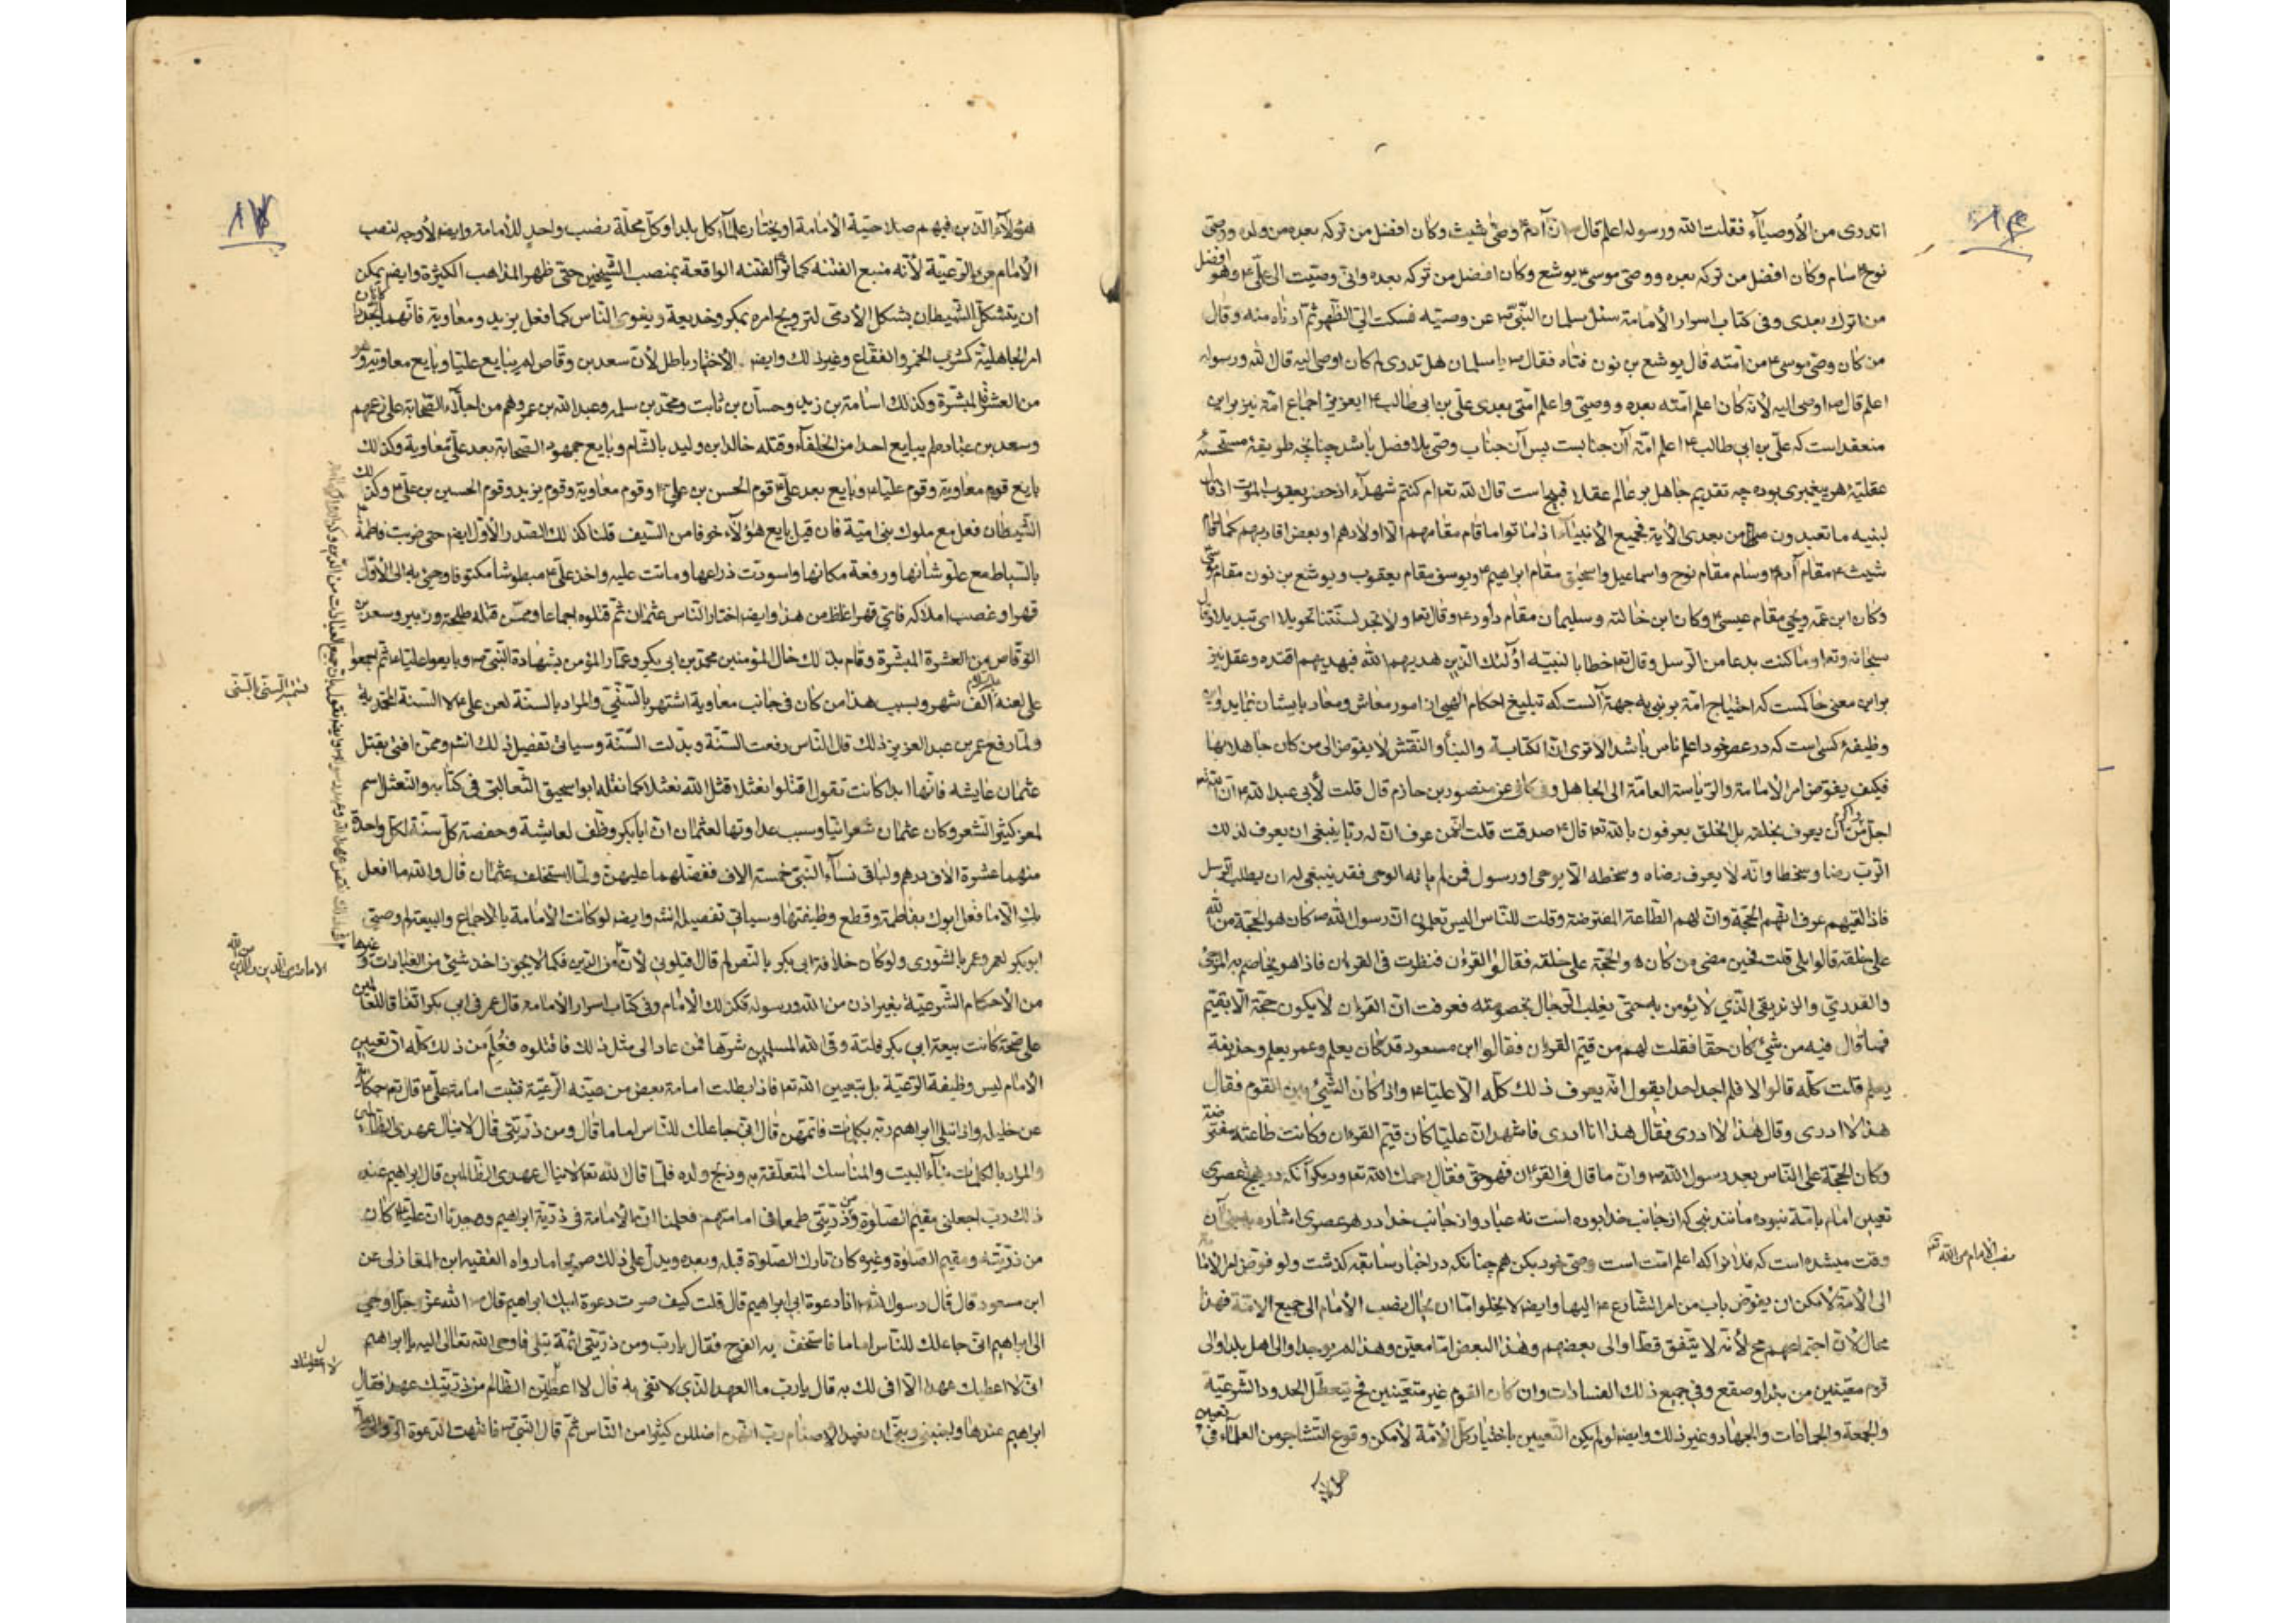 اتدری من الأوصیآء فقلت الله ورسوله اعلم قال ص انّ آدم وصّی شیث وکان افضل من ترکه بعده من ولده ووصّی
نوح سام وکان افضل من ترکه بعده ووصّی موسی یوشع وکان افضل من ترکه بعده وانّی وصّیت الی علّی وهو افضل
من اترک بعدی وفی کتاب اسرار الأمامة سئل سلمان النّبّی ص عن وصیّه فسکت الی الظّهر ثمّ ادناه منه وقال
من کان وصّی موسی من امّته قال یوشع بن نون فتاه فقال ص یا سلمان هل تدری لم کان اوصی الیه قال الله ورسوله
اعلم قال ص اوصی الیه لأنّه کان اعلم امّته بعده ووصیّی واعلم امّتی بعدی علّی بن ابی طالب ایعزیز اجماع امّة نیز براین
منعقد است که علّی بن ابی طالب اعلم امّة آن جنابست پس آن جناب وصّی بلا فصل باشد چنانچه طریقهٔ مستحسنهٔ
عقلیّهٔ هر پیغمبری بوده چه تقدیم جاهل بر عالم عقلا قبیح است قال الله تعه ام کنتم شهدآء اذ حضر یعقوب الموت اذ قال
لبنیه ما تعبدون من بعدی الأیة فجمیع الأنبیآء اذا ماتوا ما قام مقامهم الّا اولادهم او بعض اقاربهم کما قام
شیث مقام آدم وسام مقام نوح واسماعیل واسحق مقام ابراهیم ویوسف مقام یعقوب ویوشع بن نون مقام موسی
وکان ابن عمّه ویحیی مقام عیسی وکان ابن خالته وسلیمان مقام داود وقال تعه ولا تجد لسنّتنا تحویلا ای تبدیلا وقال
سبحانه وتعه وما کنت بدعا من الرّسل وقال تعه خطابا لنبیّه اولئک الّذین هدیهم الله فبهدیهم اقتده وعقل نیز
براین معنی حاکمست که احتیاج امّة بر نبی به جهة آنست که تبلیغ احکام الهی از امور معاش ومعاد بایشان نماید واین
وظیفهٔ کسی است که در عصر خود اعلم ناس باشد الا تری انّ الکتابة والبنآء والنّقش لا یفوّض الی من کان جاهلا بها
فکیف یفوّض امر الأمامة والرّیاسة العامّة الی الجاهل وفی کافی عن منصور بن حازم قال قلت لأبی عبد الله انّ الله
اجلّ واکرم من ان یعرف بخلقه بل الخلق یعرفون بالله تعه قال صدقت قلت انّ من عرف انّ له ربّا ینبغی ان یعرف لذلک
الرّبّ رضا وسخطا وانّه لا یعرف رضاه وسخطه الّا بوحی او رسول فمن لم یاته الوحی فقد ینبغی له ان یطلب الرّسل
فاذا لقیهم عرف انّهم الحجّة وانّ لهم الطّاعة المفترضة وقلت للنّاس الیس تعلمون انّ رسول الله ص کان هو الحجّة من الله
علی خلقه قالوا بلی قلت فحین مضی من کان هو الحجّة علی خلقه فقالوا القرءان فنظرت فی القرءان فاذا هو یخاصم به المرجئ
والقدریّ والزّندیقی الّذی لا یؤمن به حتّی یغلب الرّجال بخصومته فعرفت انّ القرءان لا یکون حجّة الّا بقیّم
فما قال فیه من شیئ کان حقا فقلت لهم من قیّم القرءان فقالوا ابن مسعود قد کان یعلم وعمر یعلم وحذیفة
یعلم قلت کلّه قالوا لا فلم اجد احدا یقول انّه یعرف ذلک کلّه الّا علیّا واذا کان الشّیئ بین القوم فقال
هذا لا ادری وقال هذا لا ادری فقال هذا انا ادری فاشهد انّ علیّا کان قیّم القرءان وکانت طاعته مفترضة
وکان الحجّة علی النّاس بعد رسول الله ص وانّ ما قال فی القرءان فهو حق فقال رحمک الله تعه ودیگر آنکه در هیچ عصری
تعیین امام بامّة نبوده مانند نبی که از جانب خدا بوده است نه عباد واز جانب خدا در هر عصری اشاره
وقت میشده است که فلانرا که اعلم امّتست وصّی خود بکن هم چنانکه در اخبار سابقه گذشت ولو فوّض امر الأمامة
الی الأمّة لأمکن ان یفوّض باب من امر الشّارع الیها وایضا لا یخلو امّا ان یحال نصب الأمام الی جمیع الامّة فهذا
محال لأنّ اجتماعهم مح لأنّه لا یتّفق قطّ او الی بعضهم وهذا البعض امّا معیّن وهذا لم یوجد او الی اهل بلد او الی
قوم معیّنین من بلد او صقع وفی جمیع ذلک الفسادات وان کان القوم غیر متعیّنین فح یتعطّل الحدود الشّرعیّة
والجمعة والجماعات والجهاد وغیر ذلک وایضا لو لم یکن التّعیین باختیار کلّ الأمّة لأمکن وقوع التّشاجر من العلمآء فی تعیین
هؤلاء
نصب الأمام من الله تعه
١٧
هؤلآء الّذین فیهم صلاحیّة الأمامة او یختار علمآء کل بلد او کلّ محلّة نصب واحد للأمامة وایضا لأوجه لنصب
الأمام من الرّعیّة لأنّه منبع الفتنة کما ترٰی الفتنه الواقعة بمنصب الشّیخین حتّی ظهر المذاهب الکثیرة وایضا یمکن
ان یتشکّل الشّیطان بشکل الأدمی لترویج امره بمکر وخدیعة ویغوی النّاس کما فعل یزید ومعاویة فانّهما کانا یجدّدان
امر الجاهلیّة کشرب الخمر والفقّاع وغیر ذلک وایضا الأختیار باطل لأنّ سعد بن وقاص لم یبایع علیّا وبایع معاویة وهو
من العشرة المبشّرة وکذلک اسامة بن زید وحسان بن ثابت ومحمّد بن سلمه وعبد الله بن عمر وهم من اجلّآء الصّحابة علی زعمهم
وسعد بن عباده لم یبایع احدا من الخلفآء وقتله خالد ابن ولید بالشّام وبایع جمهور الصّحابة بعد علّی معاویة وکذلک
بایع قوم معاویة وقوم علیّا وبایع بعد علّی قوم الحسن بن علّی وقوم معاویة وقوم یزید وقوم الحسین بن علّی وکذلک
الشّیطان فعل مع ملوک بنی امیّة فان قیل بایع هؤلآء خوفا من السّیف قلنا کذلک الصّدر الأوّل ایضا حتی ضربت فاطمة
بالسّیاط مع علّو شأنها ورفعة مکانها واسودّت ذراعها وماتت علیه واخذ علّی مبطوشا مکتوفا وجئ به الی الأوّل
قهرا وغصب املاکه فایّ قهر اغلظ من هذا وایضا اختار النّاس عثمان ثمّ قتلوه اجماعا وممّن قتله طلحة وزبیر وسعد بن
الوقاص من العشرة المبشّرة وقام بذلک خال المؤمنین محمّد بن ابی بکر وعمّار المؤمن بشهادة النّبی ص وبایعوا علیّا ثم اجمعوا
علی لعنه الف شهر وبسبب هذا من کان فی جانب معاویة اشتهر بالسّنّی والمراد بالسنّة لعن علی لا السنة المحمّدیة
ولمّا رفع عمر بن عبد العزیز ذلک قال النّاس رفعت السنّة وبدّلت السّنّة وسیاتی تفصیل ذلک انشه وممّن افتی بقتل
عثمان عایشه فانّها ابدا کانت تقول اقتلوا نعثلا قتل الله نعثلا کما نقله ابو اسحق الثّعالبی فی کتابه والنّعثل اسم
لمعز کثیر الشّعر وکان عثمان شعرانیّا وسبب عداوتها لعثمان انّ ابابکر وظّف لعایشة وحفصة کلّ سنّة لکلّ واحدة
منهما عشرة الاف درهم ولباقی نسآء النّبّی خمسة الاف ففضّلهما علیهنّ ولمّا استخلف عثمان قال والله ما افعل
بک الّا ما فعل ابوک بفاطمة وقطع وظیفتها وسیاتی تفصیله انشه وایضا لو کانت الأمامة بالاجماع والبیعة لم وصّی
ابو بکر لعمر وعمر بالشّوری ولو کان خلافة ابی بکر بالنّص لم قال اقیلونی لأنّه من الدّین فکما لا یجوز اخذ شیئ من العبادات وغیرها
من الأحکام الشّرعیّة بغیر اذن من الله ورسوله فکذلک الأمام وفی کتاب اسرار الامامة قال عمر فی ابی بکر اتّفاقا للعالمین
علی صحّة کانت بیعة ابی بکر فلتة وقی الله المسلمین شرّها فمن عاد الی مثل ذلک فاقتلوه فعُلِمَ من ذلک کلّه انّ تعیین
الأمام لیس وظیفة الرّعیّة بل بتعیین الله تعه فاذا بطلت امامة بعض من عیّنه الرّعیّة فثبت امامة علّی قال تعه حکایة
عن خلیله واذ ابتلی ابراهیم ربّه بکلمات فاتمّهنّ قال انّی جاعلک للنّاس اماما قال ومن ذرّیّتی قال لا ینال عهدی الظّالمین
والمراد بالکلمات بنآء البیت والمناسک المتعلّقة به وذبح ولده فلمّا قال الله تعه لا ینال عهدی الظّالمین قال ابراهیم عند
ذلک ربّ اجعلنی مقیم الصّلوة ومن ذرّیّتی طمعا فی امامتهم فعلمنا انّ الامامة فی ذرّیّة ابراهیم ووجدنا انّ علیّا کان
من ذرّیّته ومقیم الصّلوة وغیره کان تارک الصّلوة قبله وبعده ویدلّ علی ذلک صریحا ما رواه الفقیه ابن المغازلی عن
ابن مسعود قال قال رسول الله انا دعوة ابی ابراهیم قال قلت کیف صرت دعوة ابیک ابراهیم قال الله عزّ وجلّ اوحی
الی ابراهیم انّی جاعلک للنّاس اماما فاستخفّ به الفرح فقال یا ربّ ومن ذرّیّتی ائمّة مثلی فاوحی الله تعالی الیه یا ابراهیم
انّی لا اعطیک عهدا الّا افی لک به قال یا ربّ ما العهد الّذی لا تفی به قال لا اعطینّ الظّالم من ذرّیّتک عهدا فقال
ابراهیم عندها واجنبنی وبنیّ ان نعبد الاصنام ربّ انّهنّ اضللن کثیرا من النّاس ثمّ قال النّبی فانتهت الدّعوة الیّ